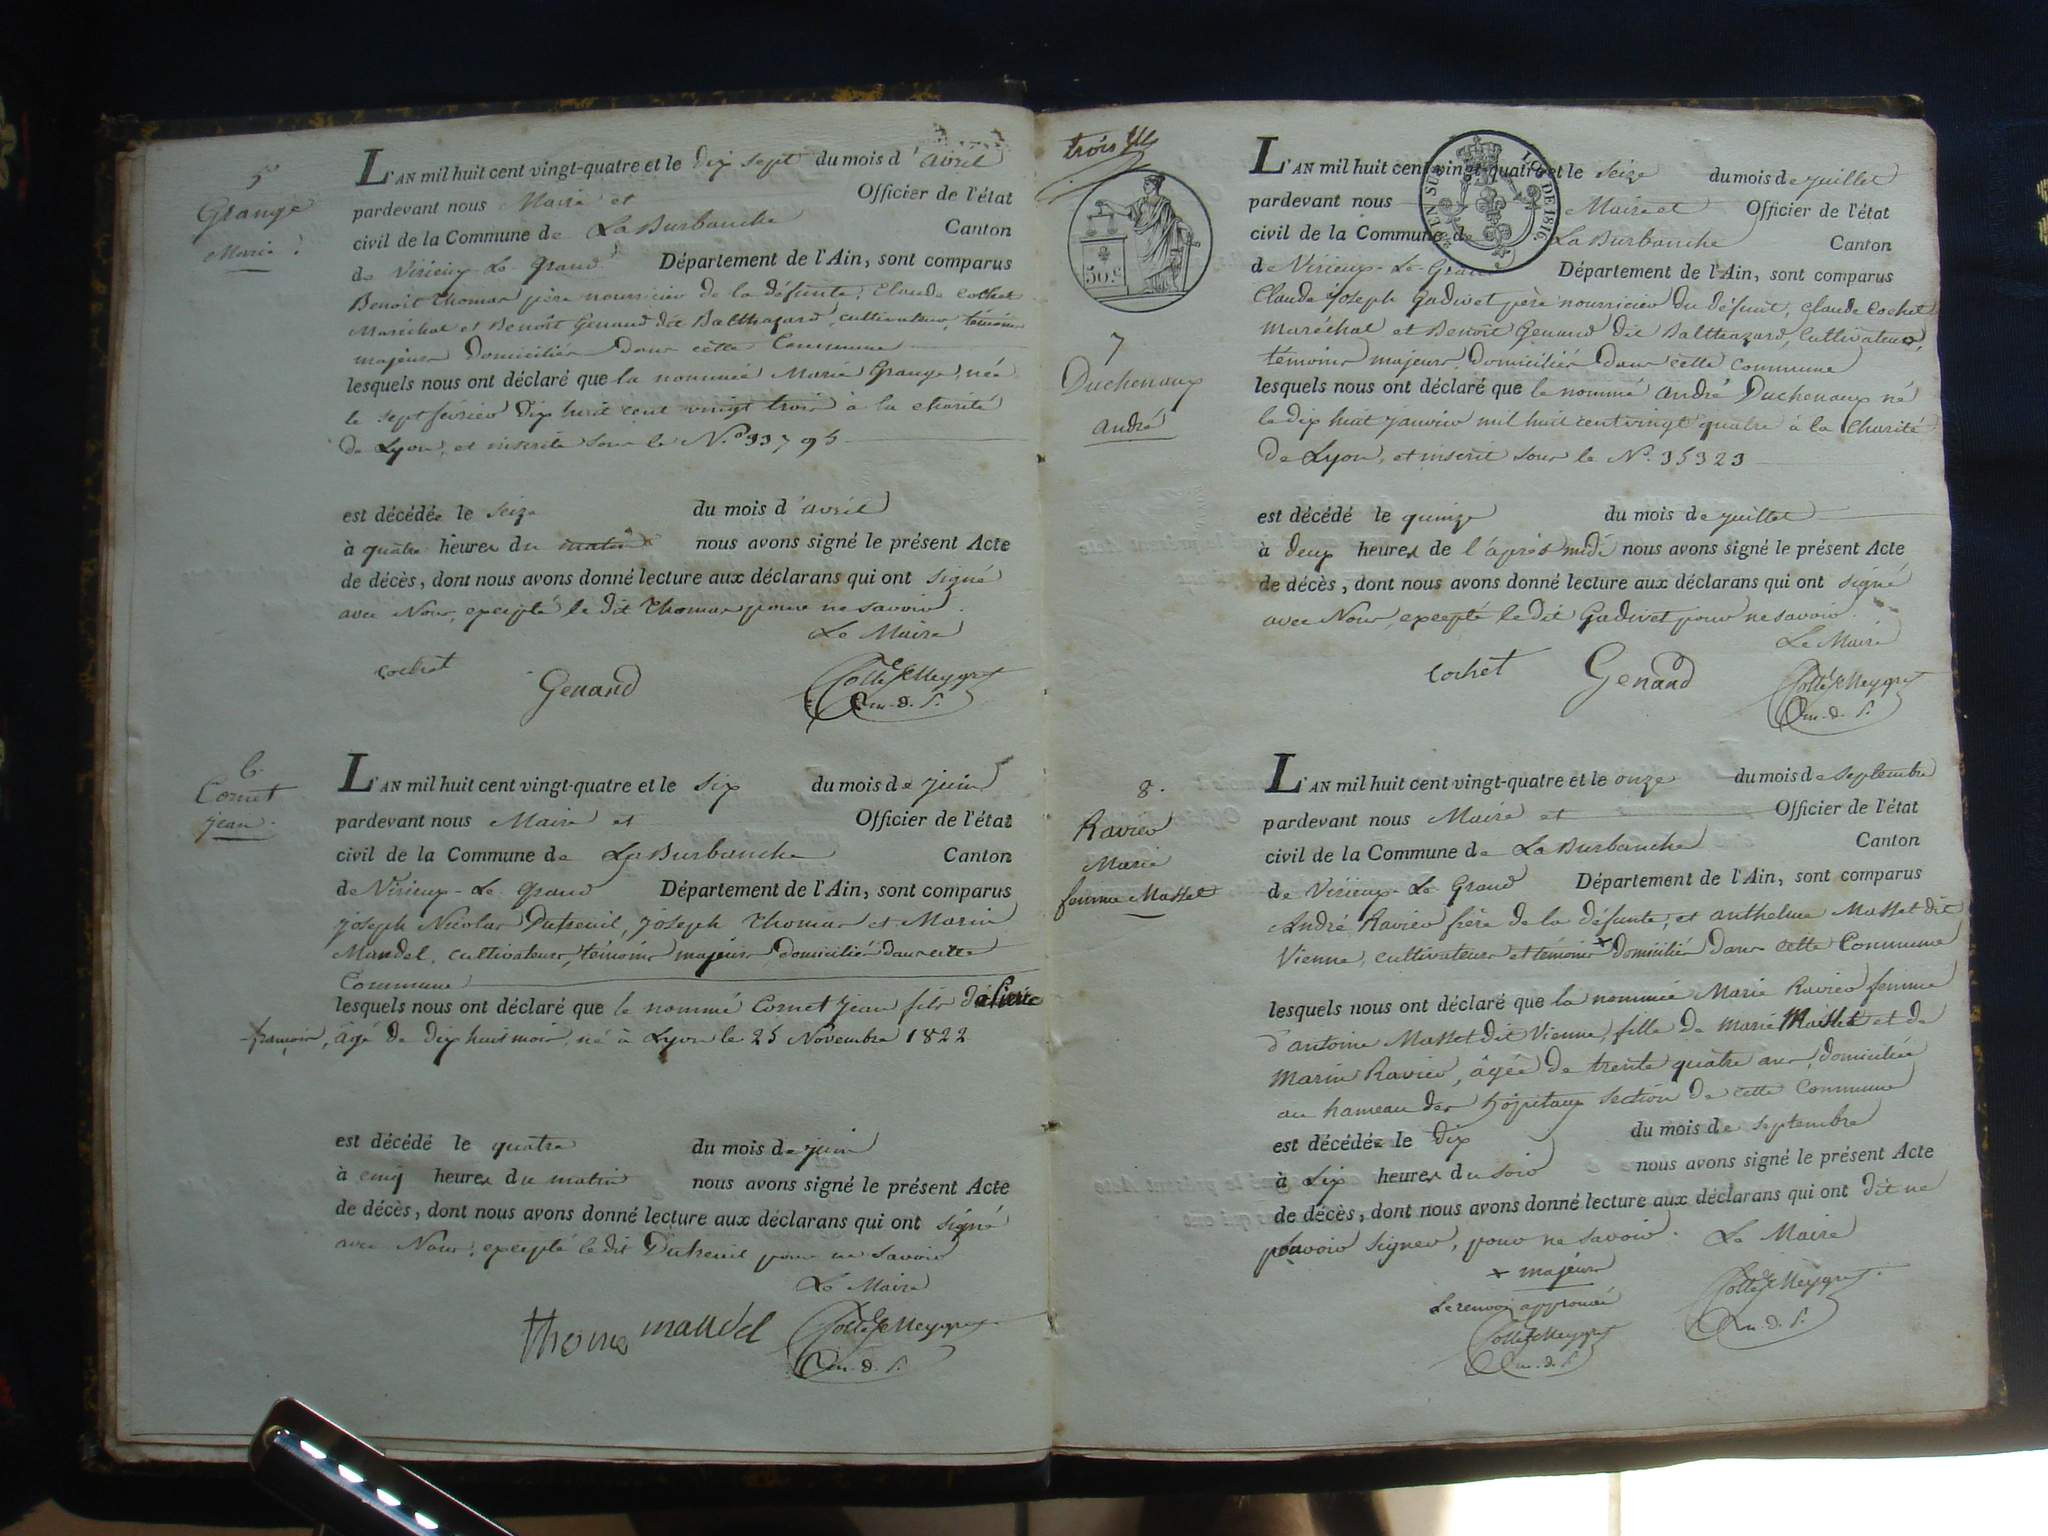 5.
Grange
Marie.
L'AN mil huit cent vingt-quatre et le dix sept du mois d'avril
pardevant nous Maire et Officier de l'état
civil de la Commune de La Burbanche Canton
de Virieux-Le-Grand Département de l'Ain, sont comparus
Benoit Thomas père nourricier de la défunte, Claude Cochet
Maréchal et Benoît Genand dit Balthazard, cultivateur, témoins
majeurs domiciliés dans cette Commune
lesquels nous ont déclaré que la nommée Marie Grange, née
le sept février dix huit cent vingt trois à la charité
de Lyon, et inscrite sous le N.º 33795
est décédée le seize du mois d'avril
à quatre heures du matin nous avons signé le présent Acte
de décès, dont nous avons donné lecture aux déclarans qui ont signé
avec Nous, excepté le dit Thomas pour ne savoir.
Le Maire
Cochet Genand
6.
Cornet
jean.
L'AN mil huit cent vingt-quatre et le six du mois de juin
pardevant nous Maire et Officier de l'état
civil de la Commune de La Burbanche Canton
de Virieux-Le-Grand Département de l'Ain, sont comparus
joseph Nicolas Dutreuil, joseph Thomas et Marin
Mandel, cultivateurs, témoins majeurs domiciliés dans cette
Commune
lesquels nous ont déclaré que le nommé Cornet jean fils
françois, âgé de dix huit mois, né à Lyon le 25 Novembre 1822
est décédé le quatre du mois de juin
à cinq heures du matin nous avons signé le présent Acte
de décès, dont nous avons donné lecture aux déclarans qui ont signé
avec Nous, excepté le dit Dutreuil pour ne savoir
Le Maire
thomas mandel
trois
50.c
TIMBRE
EN SUS
LOI DE 1816.
7
Duchenaux
andré
L'AN mil huit cent vingt-quatre et le seize du mois de juillet
pardevant nous Maire et Officier de l'état
civil de la Commune de La Burbanche Canton
de Virieux-Le-Grand Département de l'Ain, sont comparus
Claude joseph Gadivet père nourricier du défunt, Claude Cochet
Maréchal et Benoît Genand dit Balthazard, Cultivateur,
témoins majeurs domiciliés dans cette Commune
lesquels nous ont déclaré que le nommé andré Duchenaux né
le dix huit janvier mil huit cent vingt quatre à la Charité
de Lyon, et inscrit sous le N.º 35323
est décédé le quinze du mois de juillet
à deux heures de l'après midi nous avons signé le présent Acte
de décès, dont nous avons donné lecture aux déclarans qui ont signé
avec Nous, excepté le dit Gadivet pour ne savoir.
Le Maire
Cochet Genand
8.
Ravier
Marie
femme Masset
L'AN mil huit cent vingt-quatre et le onze du mois de septembre
pardevant nous Maire et Officier de l'état
civil de la Commune de La Burbanche Canton
de Virieux-Le-Grand Département de l'Ain, sont comparus
André Ravier frère de la défunte, et anthelme Masset dit
Vienne, cultivateurs et témoins × domiciliés dans cette Commune
lesquels nous ont déclaré que la nommée Marie Ravier femme
d'antoine Masset dit Vienne, fille de marie et de
Marin Ravier, âgée de trente quatre ans, domiciliée
au hameau des hôpitaux section de cette Commune
est décédée le dix du mois de septembre
à six heures du soir nous avons signé le présent Acte
de décès, dont nous avons donné lecture aux déclarans qui ont dit ne
pouvoir signer, pour ne savoir. Le Maire
× majeurs
Le renvoi approuvé